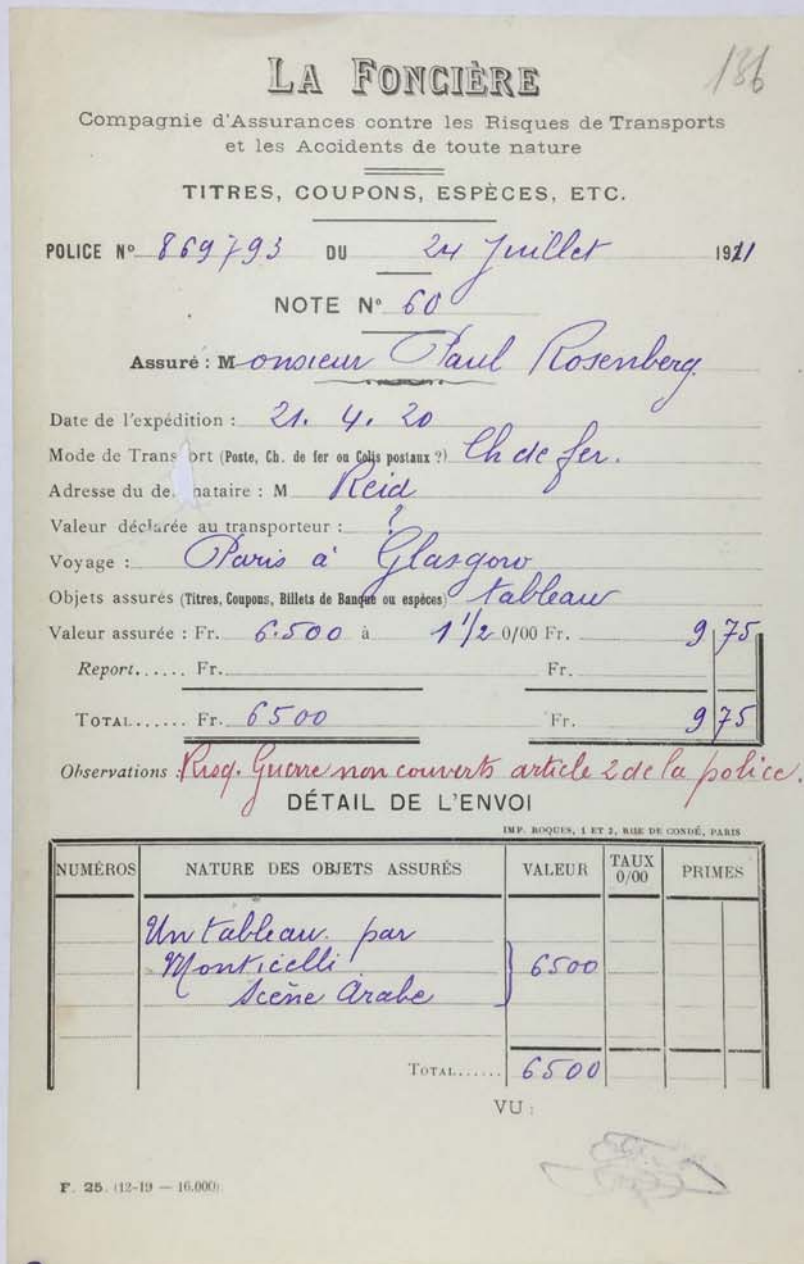 136
LA FONCIÈRE
Compagnie d'Assurances contre les Risques de Transports
et les Accidents de toute nature
TITRES, COUPONS, ESPÈCES, ETC.
POLICE N° 869793 DU 24 Juillet 1911
NOTE N° 60
Assuré : Monsieur Paul Rosenberg
Date de l'expédition : 21. 4. 20
Mode de Trans ort (Poste, Ch. de fer ou Colis postaux ?) Ch de fer.
Adresse du de nataire : M Reid
Valeur déclarée au transporteur : ?
Voyage : Paris à Glasgow
Objets assurés (Titres, Coupons, Billets de Banque ou espèces) tableau
Valeur assurée : Fr. 6.500 à 1 1/2 0/00 Fr. 9 75
Report...... Fr. Fr.
TOTAL...... Fr. 6500 Fr. 9 75
Observations : Risq. Guerre non couverts article 2 de la police.
DÉTAIL DE L'ENVOI
IMP. ROQUES, 1 ET 2, RUE DE CONDÉ, PARIS
NUMÉROS NATURE DES OBJETS ASSURÉS VALEUR TAUX 0/00 PRIMES
Un tableau par
Monticelli 6500
Scène Arabe
TOTAL...... 6500
VU :
F. 25. (12-19 — 16.000)